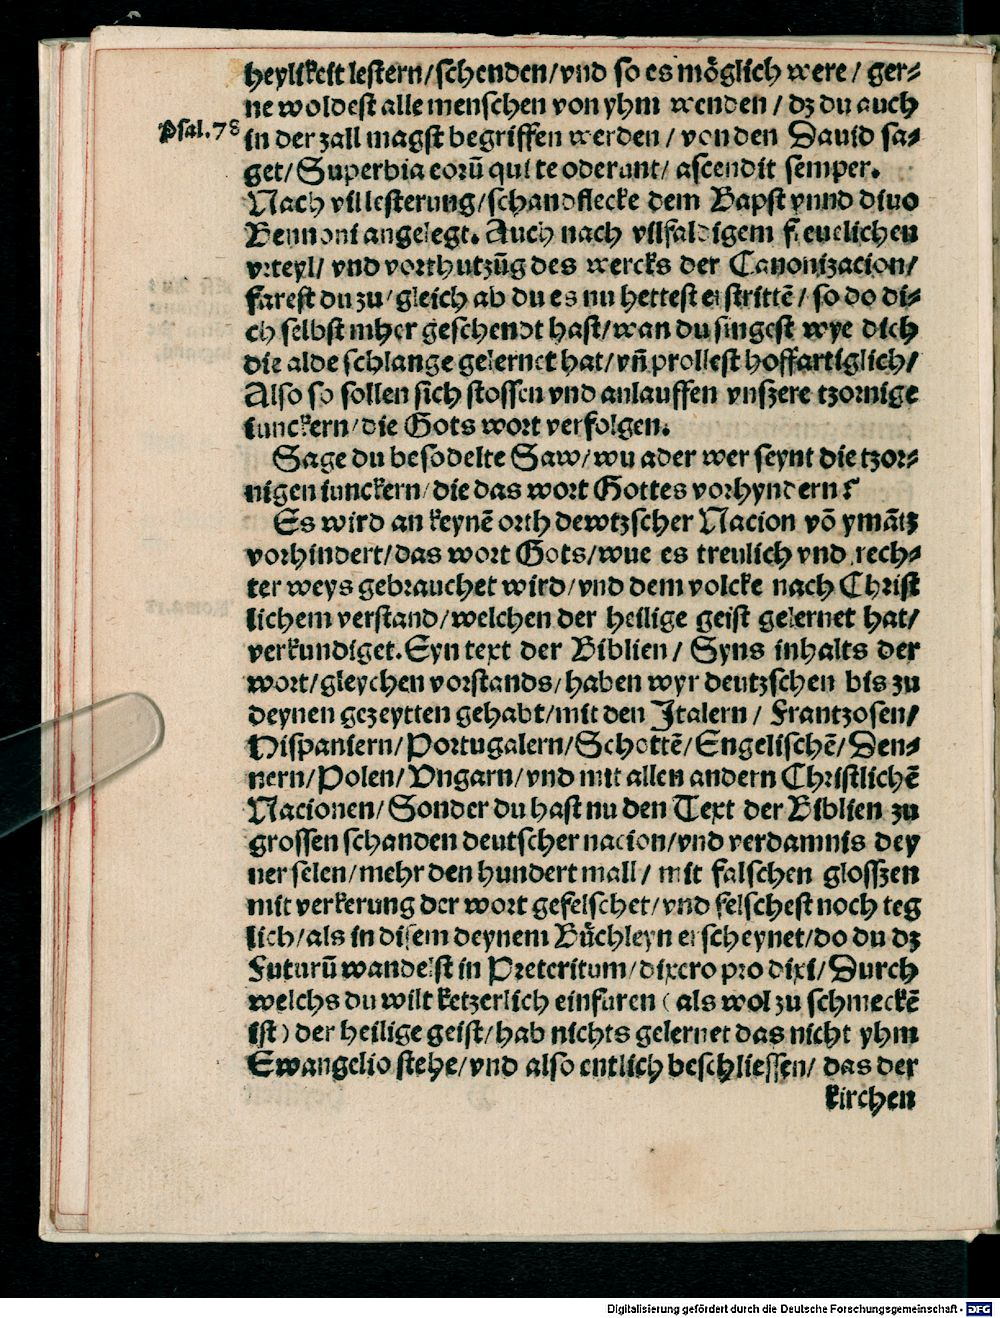 heylikeit lestern/schenden/vnd so es möglich were/ ger⸗
ne woldest alle menschen von yhm wenden/ dz du auch
Psal.78
in der zall magst begriffen werden/ von den Dauid sa⸗
get/ Superbia eorū qui te oderunt/ ascendit semper.
Nach vil lesterung/schandflecke dem Bapst vnnd diuo
Bennoni angelegt. Auch nach vilfaldigem freuelichen
vrteyl/ vnd vorthutzūg des wercks der Canonizacion/
farest du zu/ gleich ab du es nu hettest erstrittē/ so do di⸗
ch selbst mher geschendt hast/wan du singest wye dich
die alde schlange gelernet hat/vn̄ prollest hoffartiglich/
Also so sollen sich stossen vnd anlauffen vnszere tzornige
iunckern/die Gots wort verfolgen.
Sage du besodelte Saw/wu ader wer seynt die tzor⸗
nigen iunckern/die das wort Gottes vorhyndern?
Es wird an keynē orth dewtzscher Nacion vō ymātz
vorhindert/das wort Gots/wue es treulich vnd rech⸗
ter weys gebrauchet wird/vnd dem volcke nach Christ
lichem verstand/welchen der heilige geist gelernet hat/
verkundiget. Eyn text der Biblien/ Eyns inhalts der
wort/gleychen vorstands/haben wyr deutzschen bis zu
deynen gezeytten gehabt/mit den Italern/ Frantzosen/
Hispaniern/Portugalern/Schottē/Engelischē/Den⸗
nern/Polen/Vngarn/vnd mit allen andern Christlichē
Nacionen/Sonder du hast nu den Text der Biblien zu
grossen schanden deutscher nacion/vnd verdamnis dey
ner selen/mehr den hundert mall/ mit falschen glosszen
mit verkerung der wort gefelschet/vnd felschest noch teg
lich/als in disem deynem Büchleyn erscheynet/do du dz
Futurū wandelst in Preteritum/dixero pro dixi/Durch
welchs du wilt ketzerlich einfuren (als wol zu schmeckē
ist) der heilige geist/hab nichts gelernet das nicht yhm
Ewangelio stehe/vnd also entlich beschliessen/ das der
kirchen
Digitalisierung gefördert durch die Deutsche Forschungsgemeinschaft - DFG